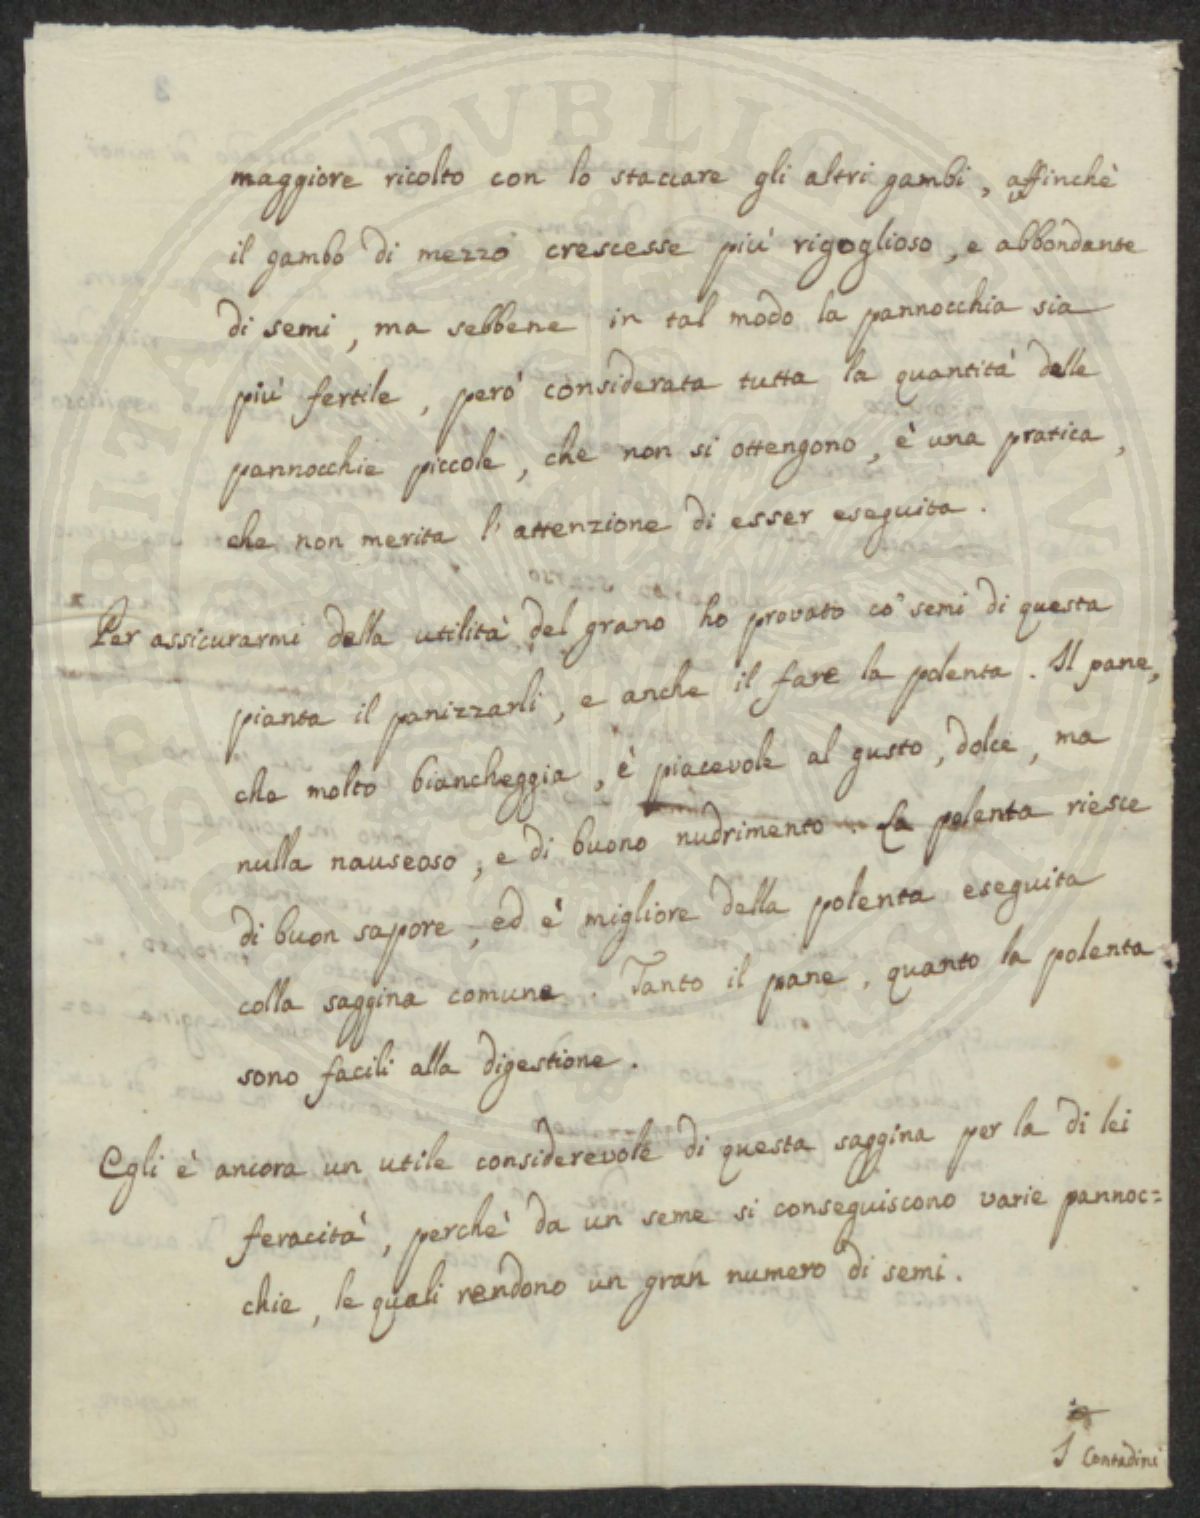 maggiore ricolto con lo staccare gli altri gambi, affinchè
il gambo di mezzo crescesse più rigoglioso, e abbondante
di semi, ma sebbene in tal modo la pannocchia sia
più fertile, però considerata tutta la quantità delle
pannocchie piccole, che non si ottengono, è una pratica,
che non merita l'attenzione di esser eseguita.
Per assicurarmi della utilità del grano ho provato co' semi di questa
pianta il panizzarli, e anche il fare la polenta. Il pane,
che molto biancheggia, è piacevole al gusto, dolce, ma
nulla nauseoso, e di buono nudrimento. La polenta riesce
di buon sapore, ed è migliore della polenta eseguita
colla saggina comune. Tanto il pane, quanto la polenta
sono facili alla digestione.
Egli è ancora un utile considerevole di questa saggina per la di lei
feracità, perchè da un seme si conseguiscono varie pannoc=
chie, le quali rendono un gran numero di semi.
I Contadini